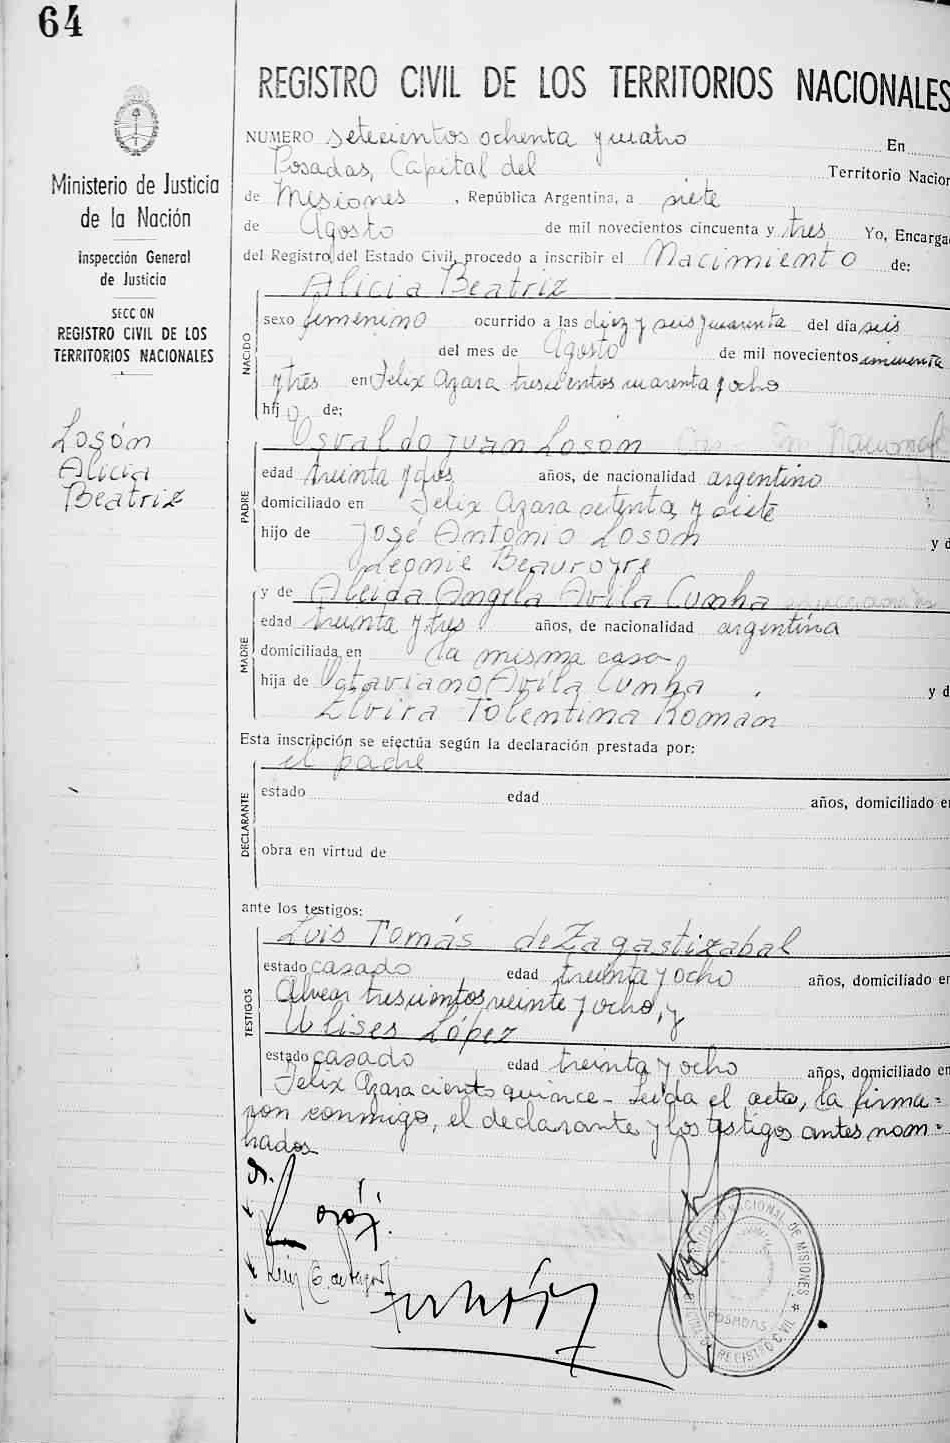 64
REGISTRO CIVIL DE LOS TERRITORIOS NACIONALES
Ministerio de Justicia
de la Nación
Inspección General
de Justicia
SECCION
REGISTRO CIVIL DE LOS
TERRITORIOS NACIONALES
Losón
Alicia
Beatriz
NUMERO setecientos ochenta y cuatro En
Posadas, Capital del Territorio Nacion
de Misiones, República Argentina, a siete
de Agosto de mil novecientos cincuenta y tres Yo, Encarga
del Registro del Estado Civil, procedo a inscribir el Nacimiento de:
NACIDO
Alicia Beatriz
sexo femenino ocurrido a las diez y seis y cuarenta del día seis
del mes de Agosto de mil novecientos cincuenta
y tres en Felix Azara trescientos cuarenta y ocho
hij o de:
PADRE
Osvaldo Juan Loson
edad treinta y dos años, de nacionalidad argentino
domiciliado en Felix Azara setenta y siete
hijo de José Antonio Loson y d
Leonie Beauroyre
MADRE
y de Aleida Angela Avila Cunha
edad treinta y tres años, de nacionalidad argentina
domiciliada en la misma casa,
hija de Octaviano Avila Cunha y d
Elvira Tolentina Román
Esta inscripción se efectúa según la declaración prestada por:
DECLARANTE
el padre
estado edad años, domiciliado en
obra en virtud de
ante los testigos:
TESTIGOS
Luis Tomás de Zagastizabal
estado casado edad treinta y ocho años, domiciliado en
Alvear trescientos veinte y ocho, y
Ulises López
estado casado edad treinta y ocho años, domiciliado en
Felix Azara ciento quince - Leída el acta, la firma=
ron conmigo, el declarante y los testigos antes nom=
brados
TERRITORIO NACIONAL DE MISIONES
POSADAS
REGISTRO CIVIL